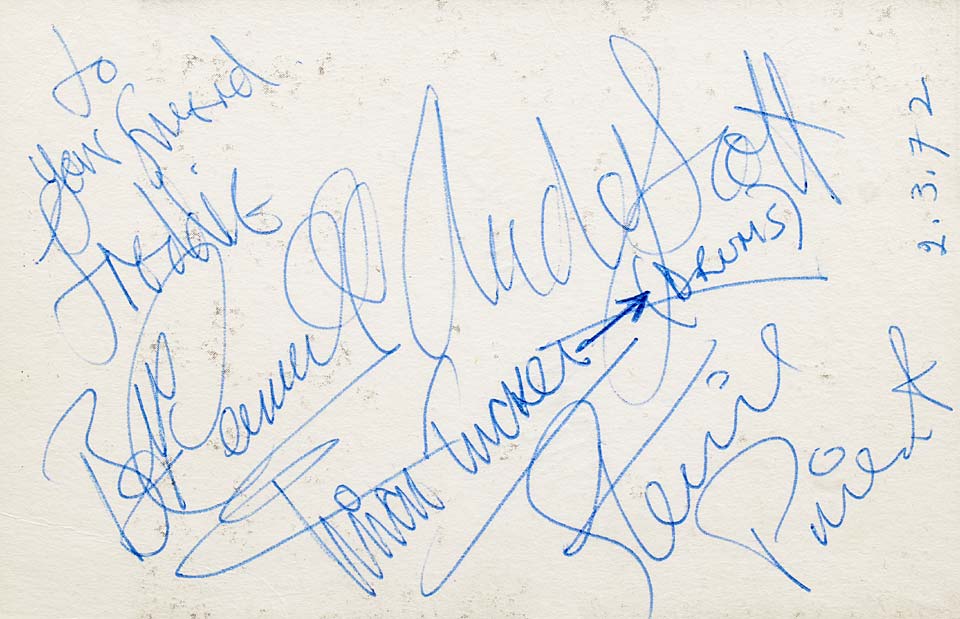 To
your friend
Freddie
Andy Scott
Tucker → (DRUMS)
Steve
Priest
2.3.72